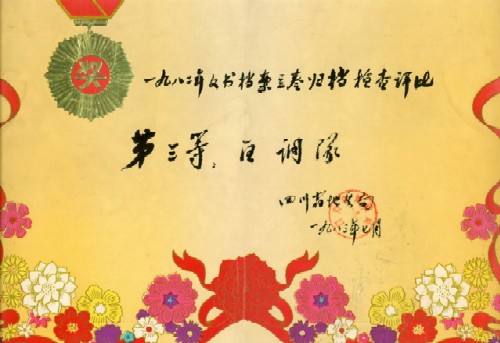 奖
一九八二年文书档案立卷归档检查评比
第三等：区调队
四川省地质局
一九八三年七月